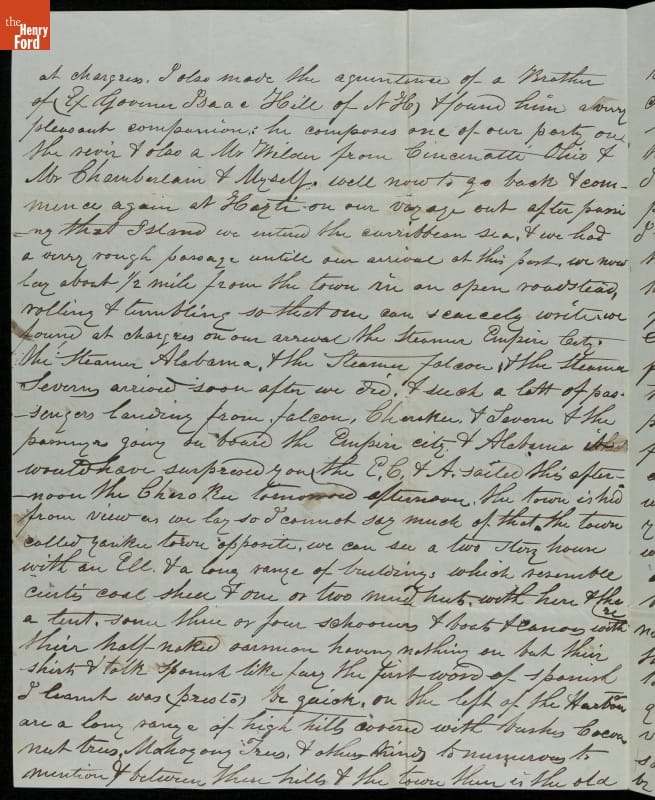 the
Henry
Ford
at chargress. I also made the aquentence of a Brother
of (Ex Govoner Isaac Hill of N H) & found him a very
pleasant companion; he composes one of our party on
the revir & also a Mr Wilder from Cincinatte Ohio &
Mr Chamberlain & Myself. well now to go back & com-
mence again at Hayti on our voyage out after passi
-ng that Island we enterd the carribbean sea, & we had
a verry rough passage untill our arrival at this port. we now
lay about 1/2 mile from the town in an open roadstead,
rolling & tumbling so that one can scarcely write. we
found at chargres on our arrival the Steamer Empire City.
the Steamer Alabama, & the Steamer falcon, & the Steamer
Severn arrived soon after we did, & such a lott of pas-
-sengers landing from falcon, Cherokee & Severn & the
passengers going on board the Empire city & Alabama
would have surpresed you the E.C. & A. sailed this after-
-noon the Cherokee tomorrow afternoon. the town is hid
from view as we lay so I cannot say much of that. the town
called yankee town opposite. we can see a two story house
with an Ell. & a long range of buildings which resemble
coal shed & one or two mud huts. with here & there
a tent. some three or four schooners & boats & canoes with
their half-naked oarsman having nothing on but their
shirts & talk Spanish like fury the first word of Spanish
I learnt was (presto) be quick, on the left of the Harbour
are a long range of high hills covered with bushes Cocoa
nut trees, Mahogony Trees, & other kinds to numerous to
mention & between these hills & the town there is the old